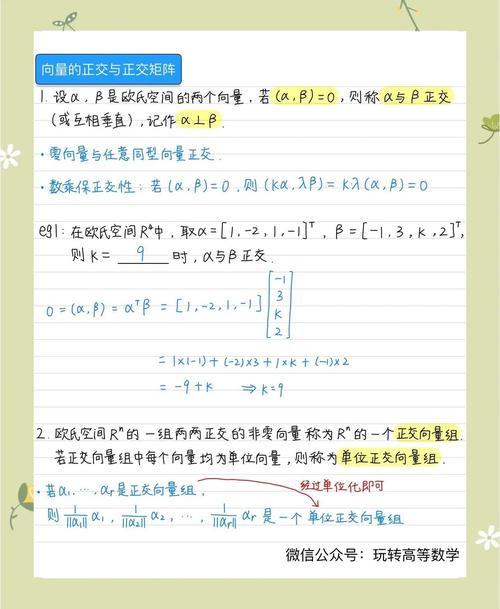 向量的正交与正交矩阵
1. 设α, β是欧氏空间的两个向量, 若(α, β)=0, 则称α与β正交
(或互相垂直), 记作α⊥β.
· 零向量与任意同型向量正交.
· 数乘保正交性: 若(α, β)=0, 则(kα, λβ)=kλ(α, β)=0
eg1: 在欧氏空间R⁴中, 取α=[1,-2,1,-1]ᵀ, β=[-1,3,k,2]ᵀ,
则k= 9 时, α与β正交.
0=(α, β)=αᵀβ=[1,-2,1,-1] [-1 3 k 2]
= 1×(-1) + (-2)×3 + 1×k + (-1)×2
= -9+k ⇒ k=9
2. 欧氏空间Rⁿ的一组两两正交的非零向量称为Rⁿ的一个正交向量组.
若正交向量组中每个向量均为单位向量, 则称为单位正交向量组.
· 若α₁, ⋯, αr是正交向量组,
经过单位化即可
则 1/||α₁|| α₁, 1/||α₂|| α₂, ⋯, 1/||αr|| αr 是一个单位正交向量组
微信公众号：玩转高等数学